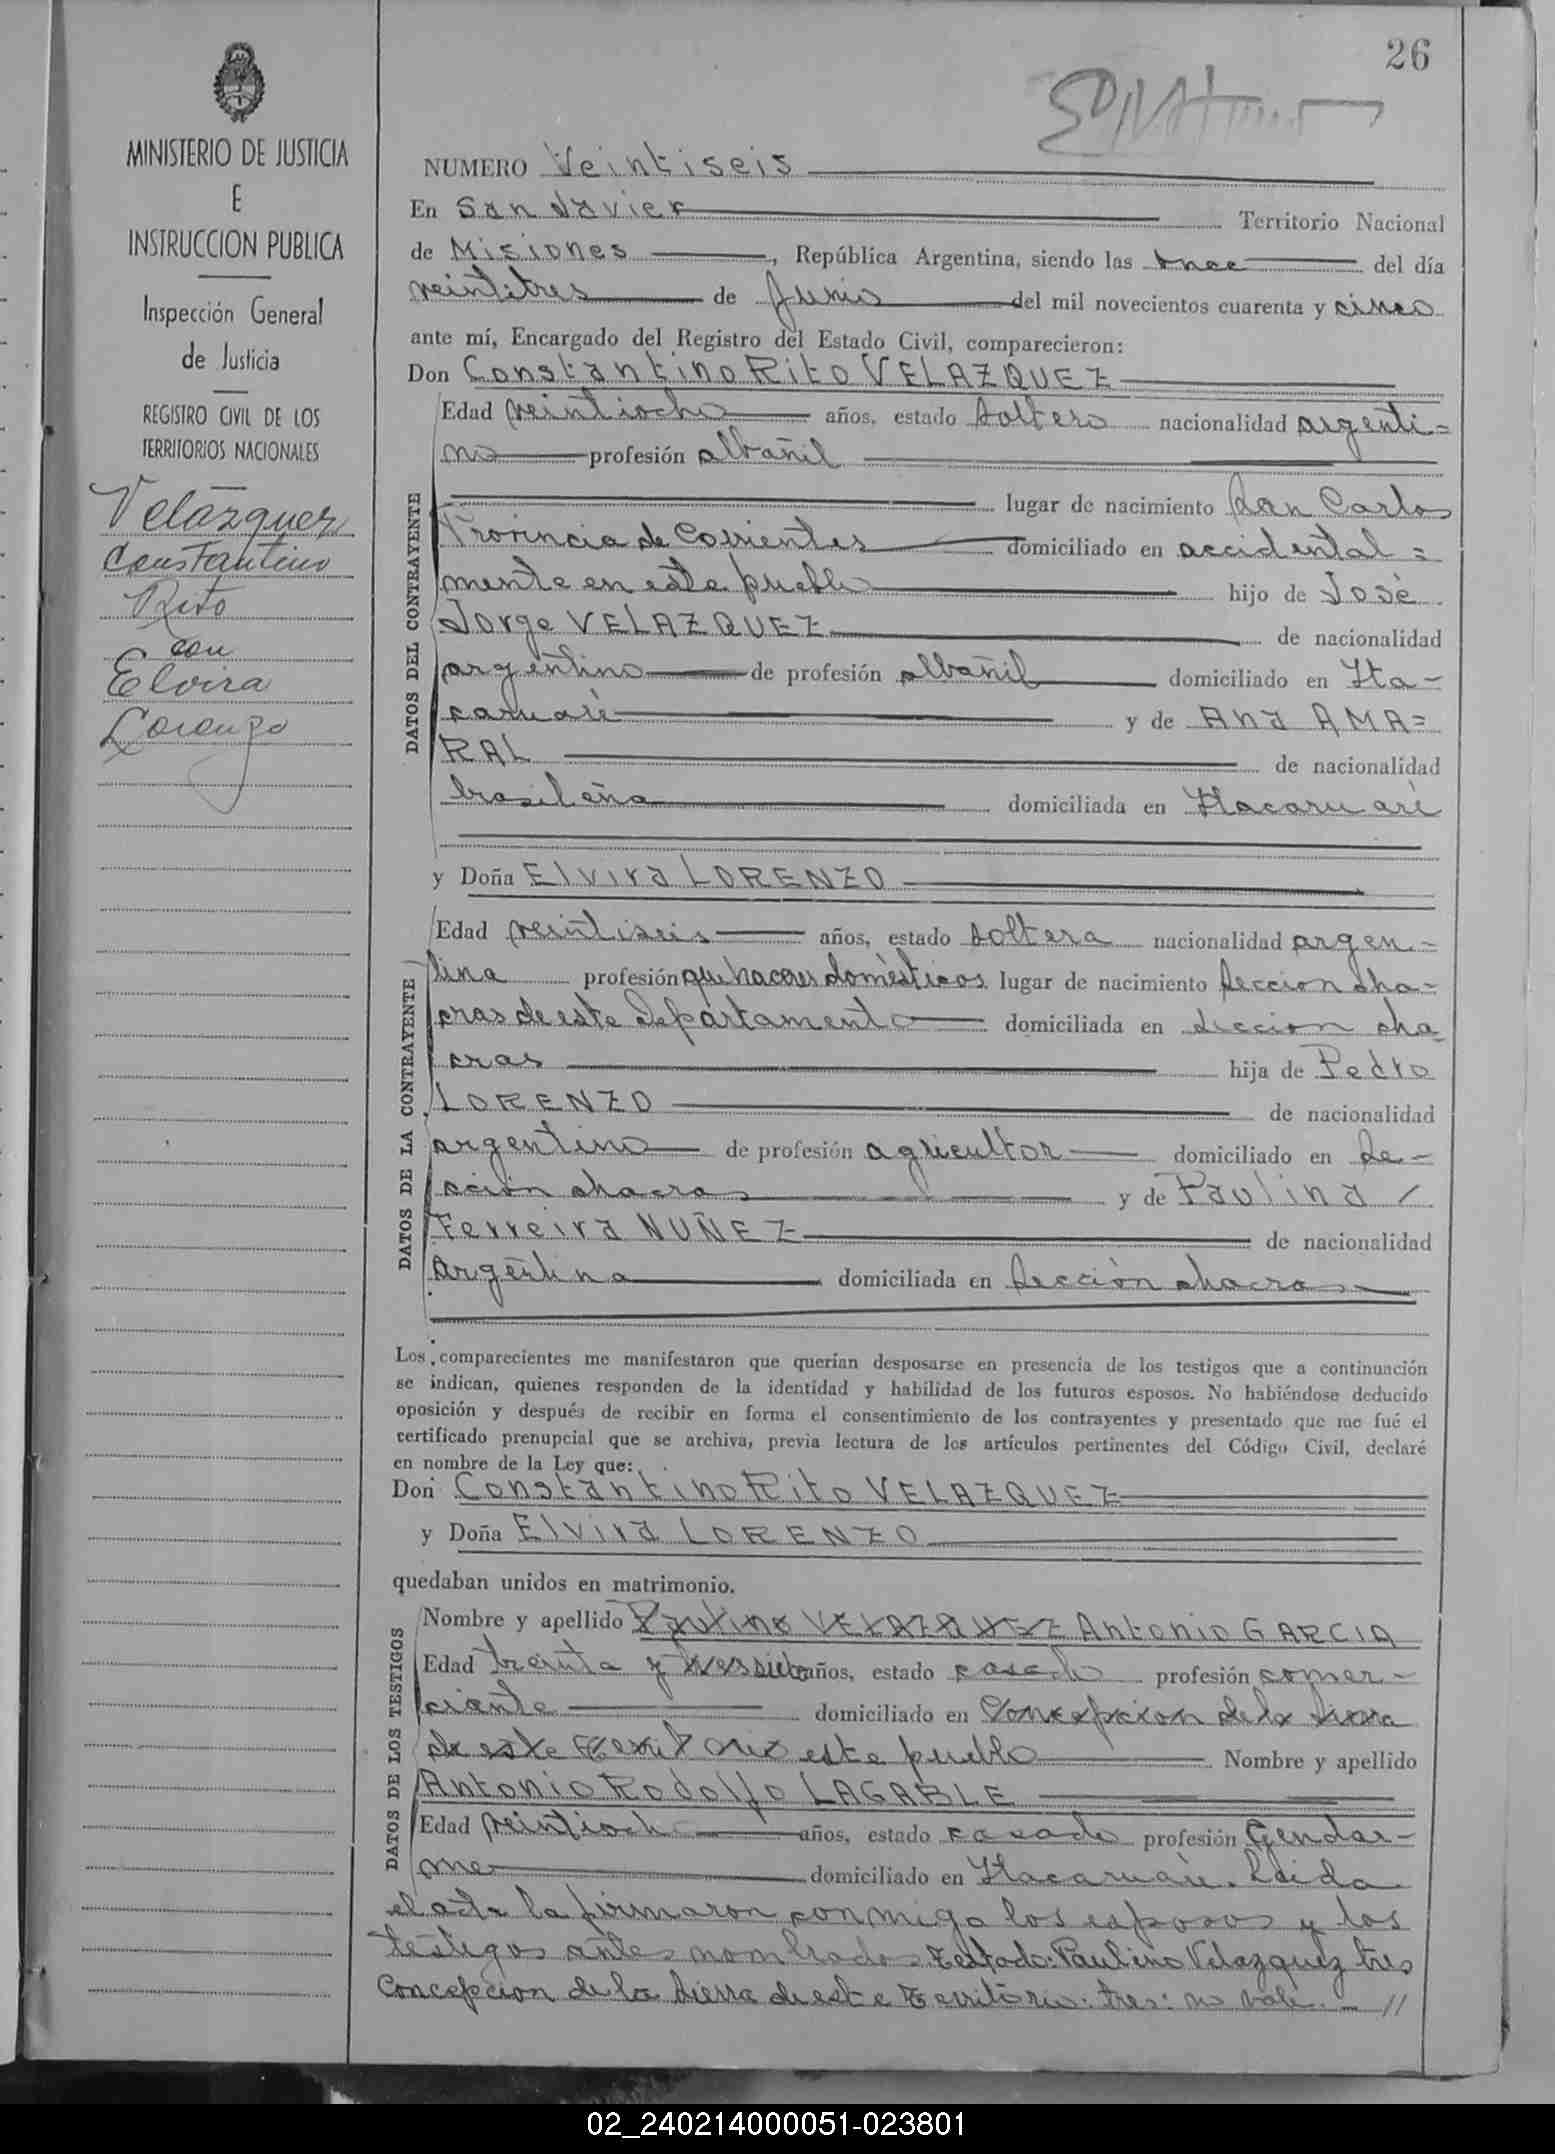 26
MINISTERIO DE JUSTICIA
E
INSTRUCCION PUBLICA
Inspección General
de Justicia
REGISTRO CIVIL DE LOS
TERRITORIOS NACIONALES
Velázquez
Constantino
Rito
con
Elvira
Lorenzo
NUMERO Veintiseis
En San Javier Territorio Nacional
de Misiones, República Argentina, siendo las once del día
veintitres de Junio del mil novecientos cuarenta y cinco
ante mí, Encargado del Registro del Estado Civil, comparecieron:
Don Constantino Rito VELAZQUEZ
DATOS DEL CONTRAYENTE
Edad veintiocho años, estado soltero nacionalidad argenti=
no profesión albañil
lugar de nacimiento San Carlos
Provincia de Corrientes domiciliado en accidental=
mente en este pueblo hijo de José
Jorge VELAZQUEZ de nacionalidad
argentino de profesión albañil domiciliado en Ita-
caruaré y de Ana AMA=
RAL de nacionalidad
brasileña domiciliada en Itacaruaré
y Doña Elvira LORENZO
DATOS DE LA CONTRAYENTE
Edad veintiseis años, estado soltera nacionalidad argen=
tina profesión quehaceres domésticos lugar de nacimiento Seccion cha=
cras de este Departamento domiciliada en seccion cha
cras hija de Pedro
LORENZO de nacionalidad
argentino de profesión agricultor domiciliado en Se-
cción chacras y de Paulina /
Ferreira NUÑEZ de nacionalidad
argentina domiciliada en Sección chacras
Los comparecientes me manifestaron que querían desposarse en presencia de los testigos que a continuación
se indican, quienes responden de la identidad y habilidad de los futuros esposos. No habiéndose deducido
oposición y después de recibir en forma el consentimiento de los contrayentes y presentado que me fué el
certificado prenupcial que se archiva, previa lectura de los artículos pertinentes del Código Civil, declaré
en nombre de la Ley que:
Don Constantino Rito VELAZQUEZ
y Doña Elvira LORENZO
quedaban unidos en matrimonio.
DATOS DE LOS TESTIGOS
Nombre y apellido Paulino VELAZQUEZ Antonio GARCIA
Edad treinta y tres siete años, estado casado profesión comer-
ciante domiciliado en Concepcion de la Sierra
de este Territorio este pueblo Nombre y apellido
Antonio Rodolfo LAGABLE
Edad veintiocho años, estado casado profesión Gendar-
me domiciliado en Itacaruaré. Leida
el acta la firmaron conmigo los esposos y los
testigos antes nombrados Testado: Paulino Velazquez tres
Concepcion de la Sierra de este Territorio: tres: no vale. - //
02_240214000051-023801